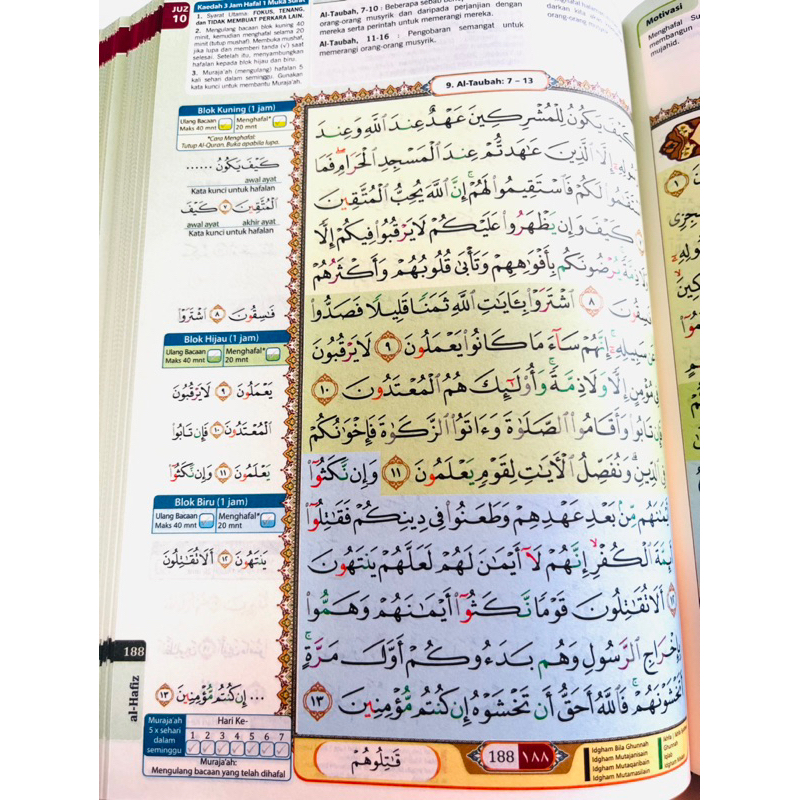 JUZ
10
Kaedah 3 Jam Hafal 1 Muka Surat
1. Syarat Utama: FOKUS, TENANG,
dan TIDAK MEMBUAT PERKARA LAIN.
2. Mengulang bacaan blok kuning 40
minit, kemudian menghafal selama 20
minit (tutup mushaf). Membuka mushaf,
jika lupa dan memberi tanda (√) saat
selesai. Setelah itu, menyambungkan
hafalan kepada blok hijau dan biru.
3. Muraja'ah (mengulang) hafalan 5
kali sehari dalam seminggu. Gunakan
kata kunci untuk membantu Muraja'ah.
Al-Taubah, 7-10 : Beberapa sebab
orang-orang musyrik dan daripada perjanjian dengan
mereka serta perintah untuk memerangi mereka.
Al-Taubah, 11-16 : Pengobaran semangat untuk
memerangi orang-orang musyrik.
Motivasi
Menghafal
membangun
mujahid.
9. Al-Taubah: 7 – 13
Blok Kuning (1 jam)
Ulang Bacaan Maks 40 mnt
Menghafal* 20 mnt
*Cara Menghafal:
Tutup Al-Quran. Buka apabila lupa.
كَيْفَ يَكُونُ ......
awal ayat
Kata kunci untuk hafalan
الْمُتَّقِينَ ٧ كَيْفَ
awal ayat akhir ayat
Kata kunci untuk hafalan
فَاسِقُونَ ٨ اشْتَرَوْا
Blok Hijau (1 jam)
Ulang Bacaan Maks 40 mnt
Menghafal* 20 mnt
يَعْمَلُونَ ٩ لَا يَرْقُبُونَ
الْمُعْتَدُونَ ١٠ فَإِن تَابُوا
يَعْلَمُونَ ١١ وَإِن نَّكَثُوا
Blok Biru (1 jam)
Ulang Bacaan Maks 40 mnt
Menghafal* 20 mnt
يَنتَهُونَ ١٢ أَلَا تُقَاتِلُونَ
... إِن كُنتُم مُّؤْمِنِينَ ١٣
188
al-Hafiz
Muraja'ah
5 x sehari
dalam
seminggu
Hari Ke-
1 2 3 4 5 6 7
Muraja'ah:
Mengulang bacaan yang telah dihafal
كَيْفَ يَكُونُ لِلْمُشْرِكِينَ عَهْدٌ عِندَ اللَّهِ وَعِندَ
إِلَّا الَّذِينَ عَاهَدتُّمْ عِندَ الْمَسْجِدِ الْحَرَامِ فَمَا
لَكُمْ فَاسْتَقِيمُوا لَهُمْ إِنَّ اللَّهَ يُحِبُّ الْمُتَّقِينَ
كَيْفَ وَإِن يَظْهَرُوا عَلَيْكُمْ لَا يَرْقُبُوا فِيكُمْ إِلًّا
ذِمَّةً يُرْضُونَكُم بِأَفْوَاهِهِمْ وَتَأْبَىٰ قُلُوبُهُمْ وَأَكْثَرُهُمْ
٨ اشْتَرَوْا بِآيَاتِ اللَّهِ ثَمَنًا قَلِيلًا فَصَدُّوا
عَن سَبِيلِهِ إِنَّهُمْ سَاءَ مَا كَانُوا يَعْمَلُونَ ٩ لَا يَرْقُبُونَ
مُؤْمِنٍ إِلًّا وَلَا ذِمَّةً وَأُولَٰئِكَ هُمُ الْمُعْتَدُونَ ١٠
تَابُوا وَأَقَامُوا الصَّلَاةَ وَآتَوُا الزَّكَاةَ فَإِخْوَانُكُمْ
فِي الدِّينِ وَنُفَصِّلُ الْآيَاتِ لِقَوْمٍ يَعْلَمُونَ ١١ وَإِن نَّكَثُوا
مِّن بَعْدِ عَهْدِهِمْ وَطَعَنُوا فِي دِينِكُمْ فَقَاتِلُوا
الْكُفْرِ إِنَّهُمْ لَا أَيْمَانَ لَهُمْ لَعَلَّهُمْ يَنتَهُونَ
١٢ أَلَا تُقَاتِلُونَ قَوْمًا نَّكَثُوا أَيْمَانَهُمْ وَهَمُّوا
بِإِخْرَاجِ الرَّسُولِ وَهُم بَدَءُوكُمْ أَوَّلَ مَرَّةٍ
أَتَخْشَوْنَهُمْ فَاللَّهُ أَحَقُّ أَن تَخْشَوْهُ إِن كُنتُم مُّؤْمِنِينَ ١٣
قَاتِلُوهُمْ
188 ١٨٨
Idgham Bila Ghunnah
Idgham Mutajanisain
Idgham Mutaqaribain
Idgham Mutamasilain